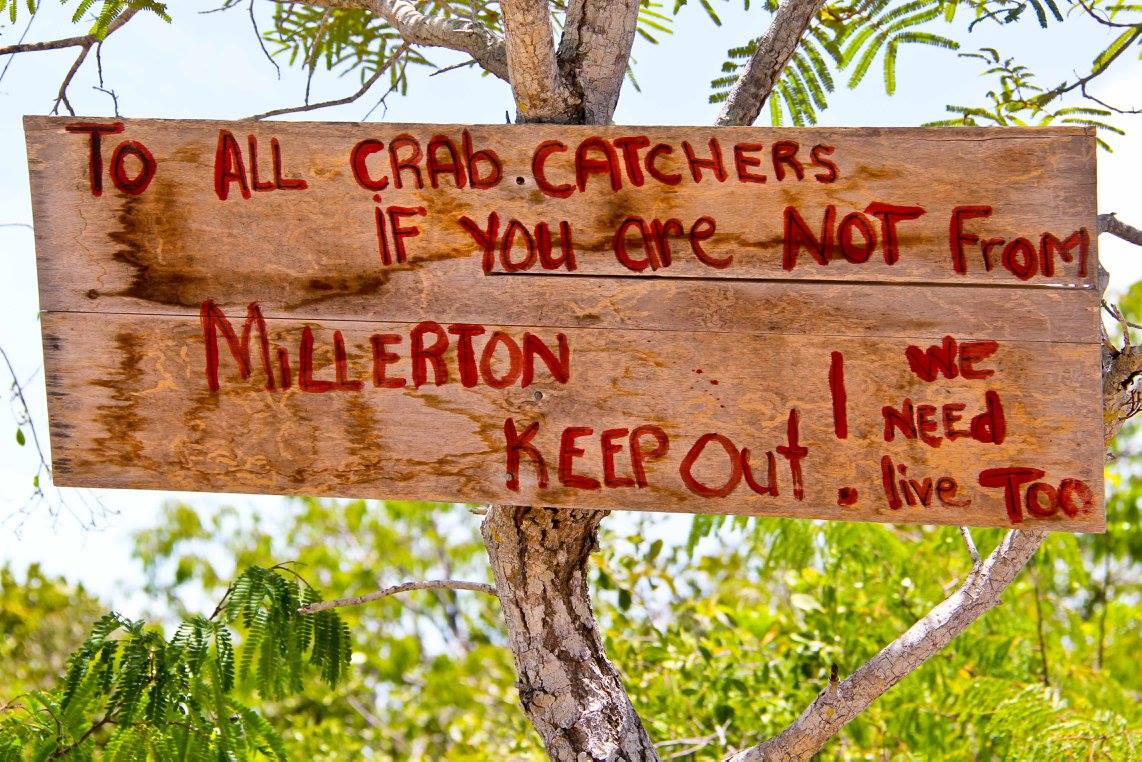 To ALL CRAb. CATCHERS
iF You are NOT From
MiLLERTON
KEEP Out !
WE
NEEd
live Too